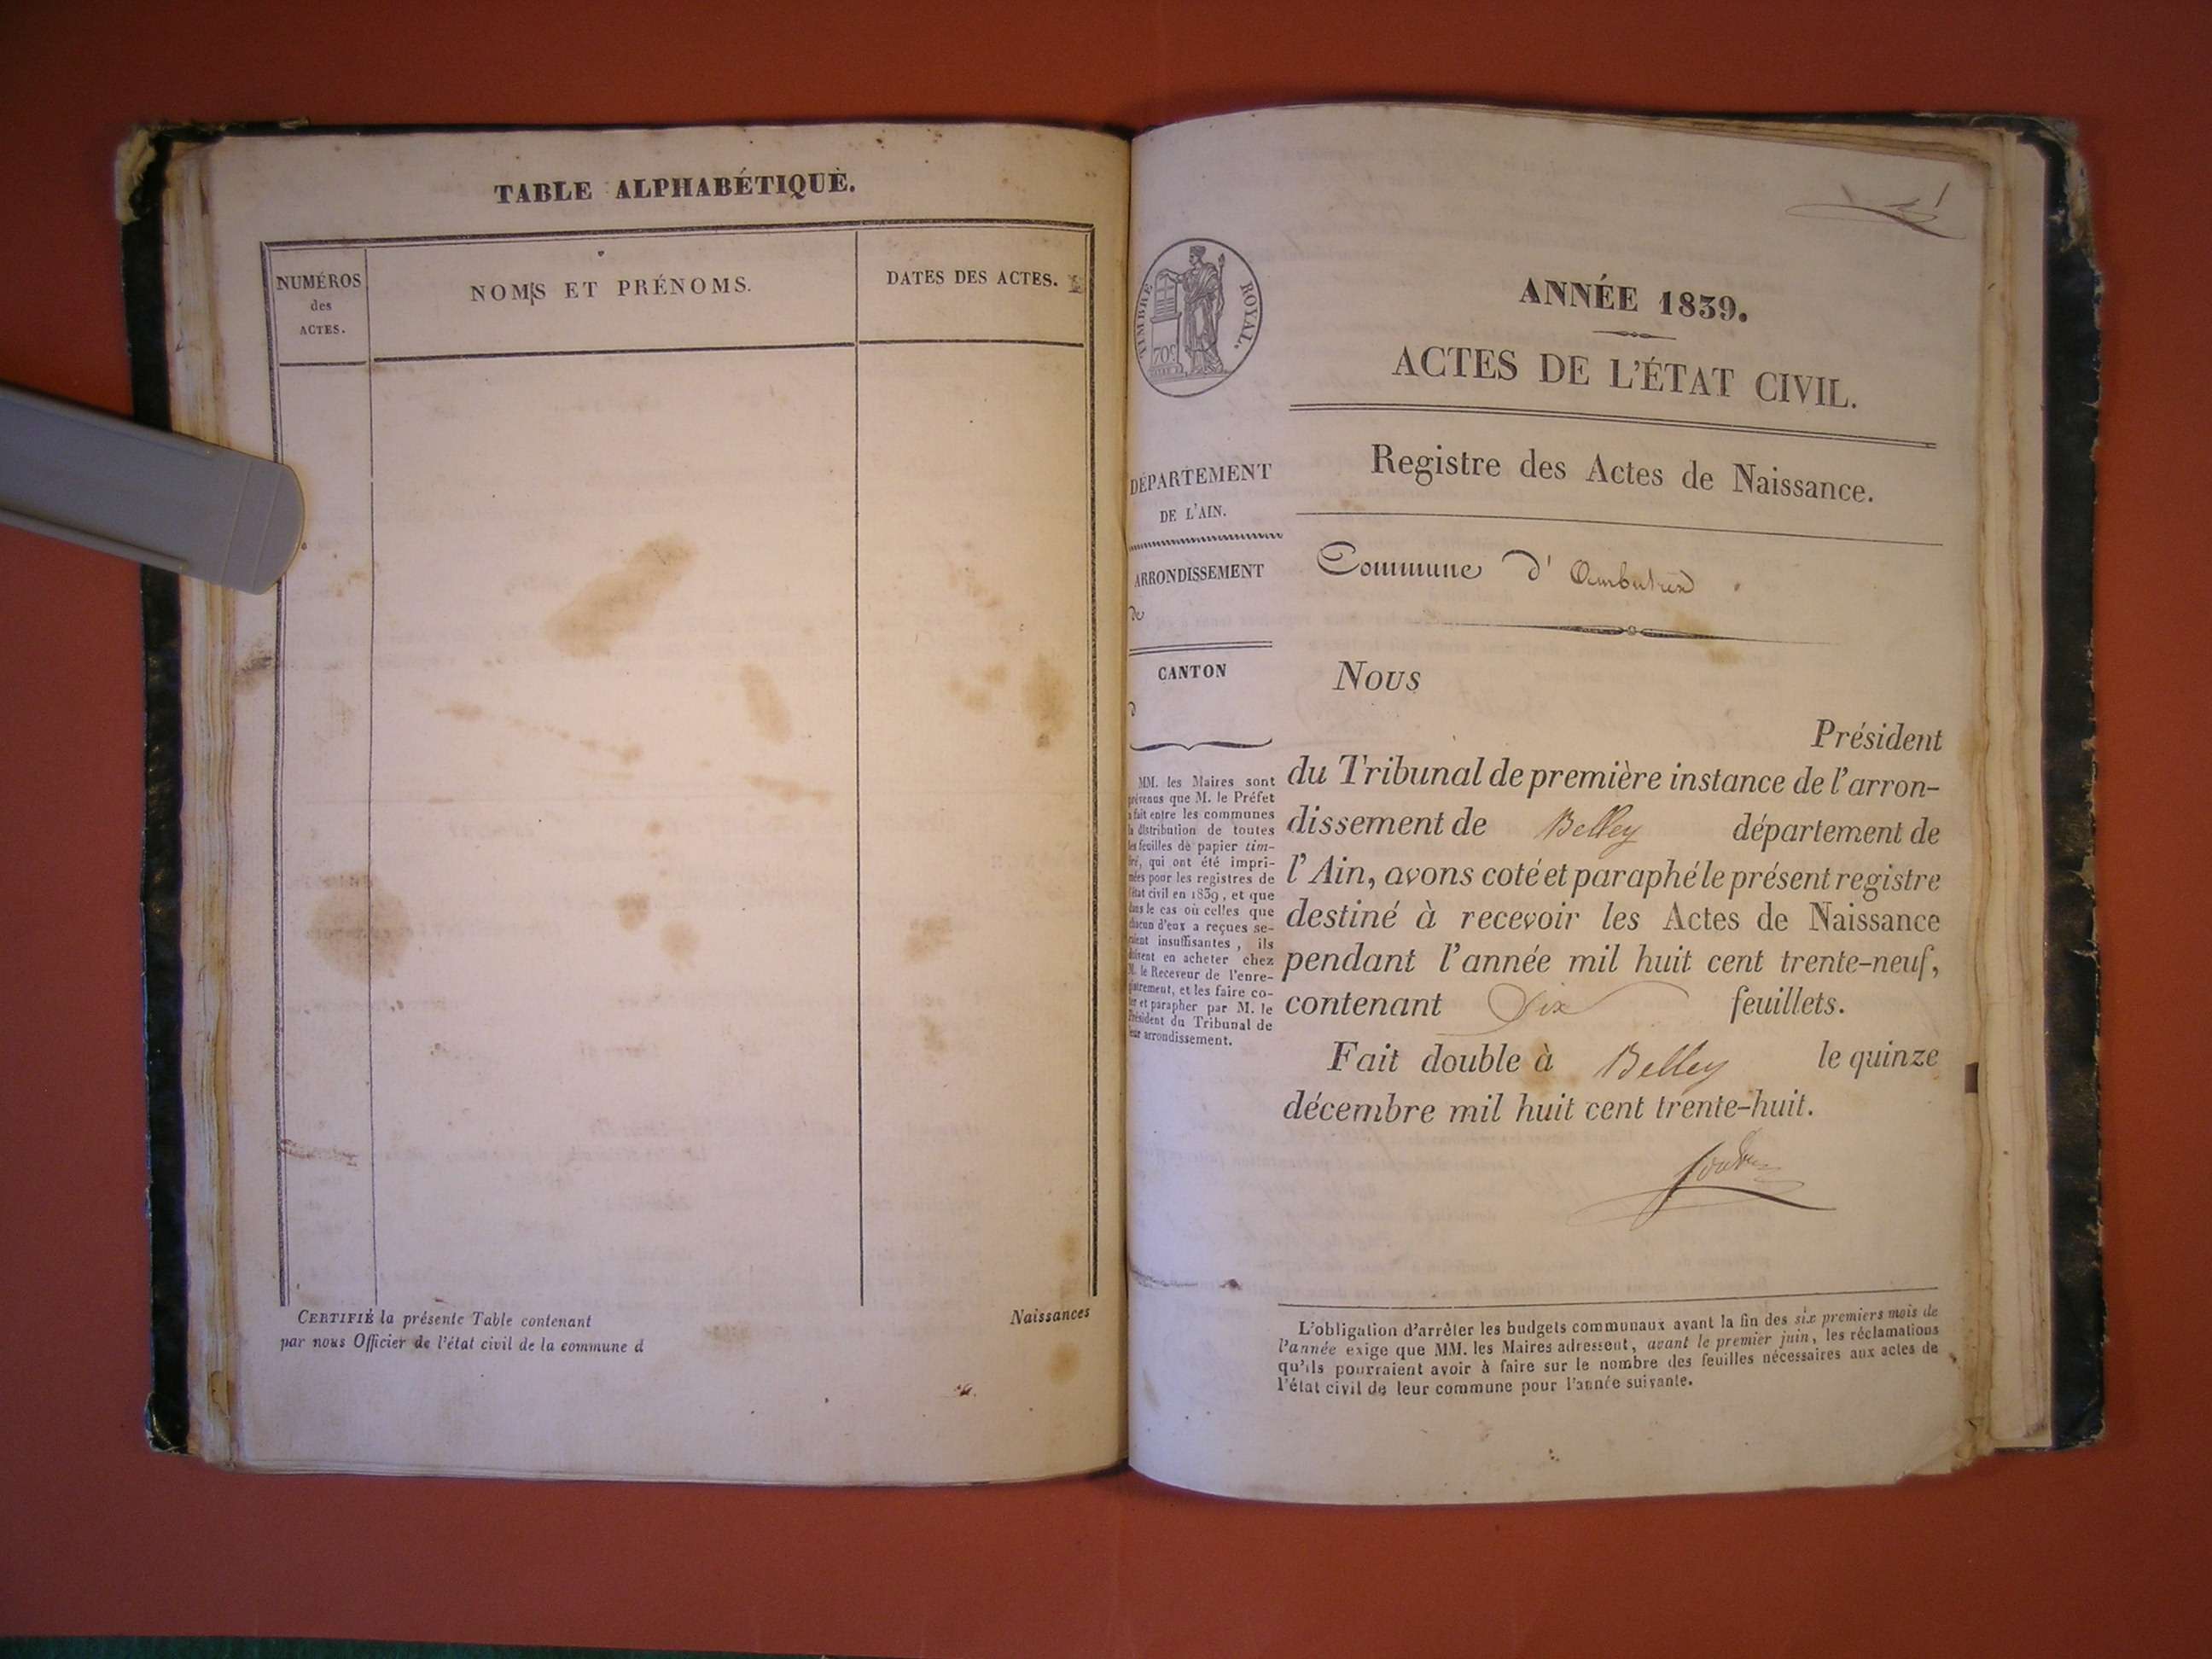 TABLE ALPHABÉTIQUE.
NUMÉROS
des
ACTES.
NOMS ET PRÉNOMS.
DATES DES ACTES.
CERTIFIÉ la présente Table contenant Naissances
par nous Officier de l'état civil de la commune d
1
TIMBRE ROYAL.
70c
ANNÉE 1839.
ACTES DE L'ÉTAT CIVIL.
Registre des Actes de Naissance.
DÉPARTEMENT
DE L'AIN.
ARRONDISSEMENT
de
CANTON
d
MM. les Maires sont
prévenus que M. le Préfet
a fait entre les communes
la distribution de toutes
les feuilles de papier tim-
bré, qui ont été impri-
mées pour les registres de
l'état civil en 1839, et que
dans le cas où celles que
chacun d'eux a reçues se-
raient insuffisantes, ils
doivent en acheter chez
M. le Receveur de l'enre-
gistrement, et les faire co-
ter et parapher par M. le
Président du Tribunal de
leur arrondissement.
Commune d' Ambutrix
Nous
Président
du Tribunal de première instance de l'arron-
dissement de Belley département de
l'Ain, avons coté et paraphé le présent registre
destiné à recevoir les Actes de Naissance
pendant l'année mil huit cent trente-neuf,
contenant Six feuillets.
Fait double à Belley le quinze
décembre mil huit cent trente-huit.
L'obligation d'arrêter les budgets communaux avant la fin des six premiers mois de
l'année exige que MM. les Maires adressent, avant le premier juin, les réclamations
qu'ils pourraient avoir à faire sur le nombre des feuilles nécessaires aux actes de
l'état civil de leur commune pour l'année suivante.